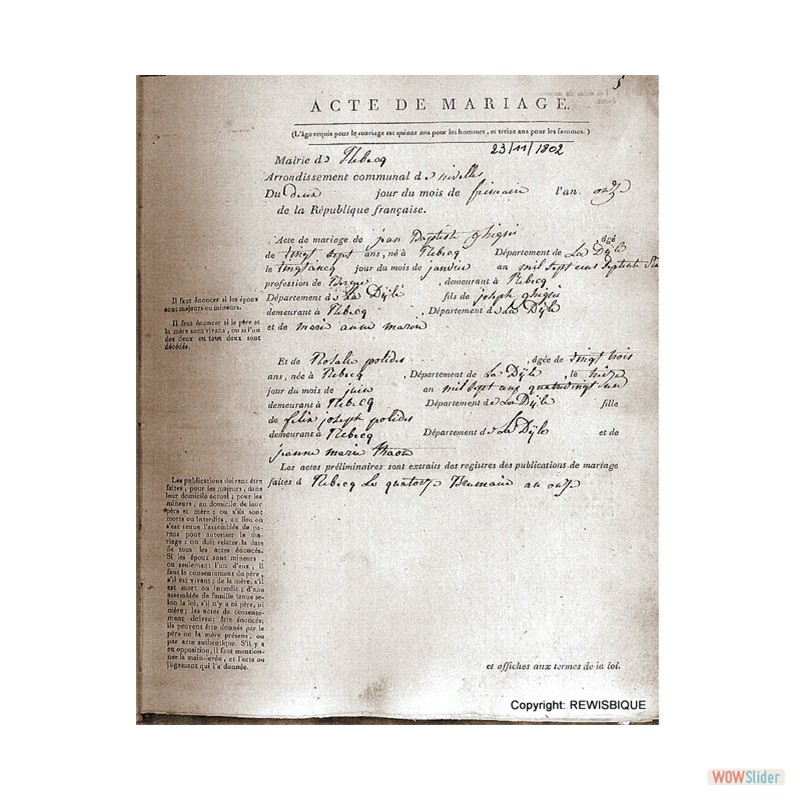 5
ACTE DE MARIAGE.
(L'âge requis pour le mariage est quinze ans pour les hommes, et treize ans pour les femmes.)
23/11/1802
Mairie de Rebecq
Arrondissement communal de nivelles
Du deux jour du mois de frimaire l'an onze
de la République française.
Acte de mariage de jean Baptiste ghigni âgé
de vingt sept ans, né à Rebecq Département de La Dÿle
le vingt cinq jour du mois de janvier an mil sept cens septente six
profession de , demeurant à Rebecq
Département de La Dÿle fils de joseph ghigni
demeurant à Rebecq , Département de La Dÿle
et de marie anne
Il faut énoncer si les époux
sont majeurs ou mineurs.
Il faut énoncer si le père et
la mère sont vivans, ou si l'un
des deux ou tous deux sont
décédés.
Et de Rosalie polides , âgée de vingt trois
ans, née à Rebecq , Département de La Dÿle , le
jour du mois de juin an mil sept cens quatrevingt
demeurant à Rebecq Département de La Dÿle fille
de felix joseph polides
demeurant à Rebecq Département de La Dÿle et de
jeanne marie
Les actes préliminaires sont extraits des registres des publications de mariage
faites à Rebecq Le quatorze Brumaire an onze
Les publications doivent être
faites, pour les majeurs, dans
leur domicile actuel; pour les
mineurs, au domicile de leur
père et mère; ou s'ils sont
morts ou interdits, au lieu où
s'est tenue l'assemblée de pa-
rens pour autoriser le ma-
riage: on doit relater la date
de tous les actes énoncés.
Si les époux sont mineurs,
ou seulement l'un d'eux, il
faut le consentement du père,
s'il est vivant; de la mère, s'il
est mort ou interdit; d'une
assemblée de famille tenue se-
lon la loi, s'il n'y a ni père, ni
mère; les actes de consente-
ment doivent être énoncés;
ils peuvent être donnés par le
père ou la mère présens, ou
par acte authentique. S'il y a
eu opposition, il faut mention-
ner la main-levée, et l'acte ou
jugement qui l'a donnée.
et affiches aux termes de la loi.
Copyright: REWISBIQUE
WOWSlider